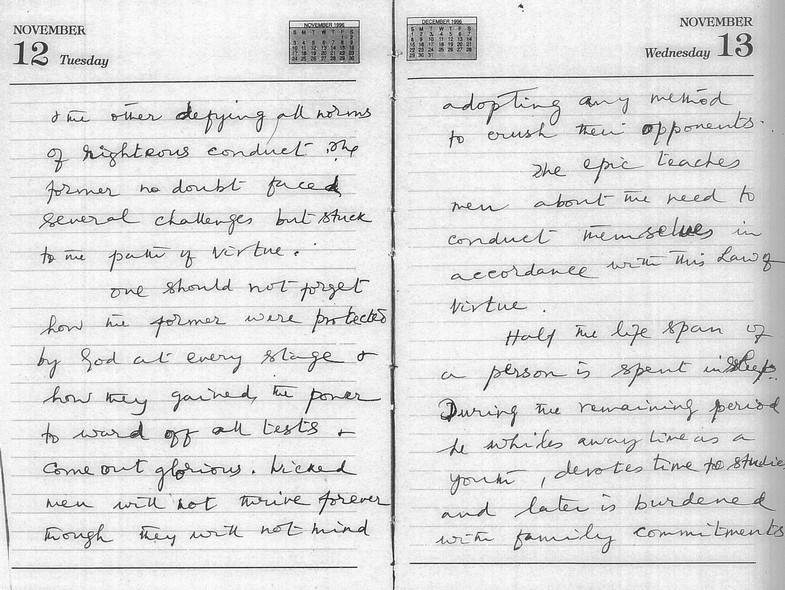 NOVEMBER
12 Tuesday
NOVEMBER 1996
& the other defying all norms
of righteous conduct. The
former no doubt faced
several challenges but stuck
to the path of virtue.
one should not forget
how the former were protected
by God at every stage &
how they gained the power
to ward off all tests &
come out glorious. Wicked
men will not thrive forever
though they will not mind
DECEMBER 1996
NOVEMBER
Wednesday 13
adopting any method
to crush their opponents.
The epic teaches
men about the need to
conduct themselves in
accordance with this Law of
Virtue.
Half the life span of
a person is spent in sleep.
During the remaining period
he whiles away time as a
youth, devotes time to studies
and later is burdened
with family commitments